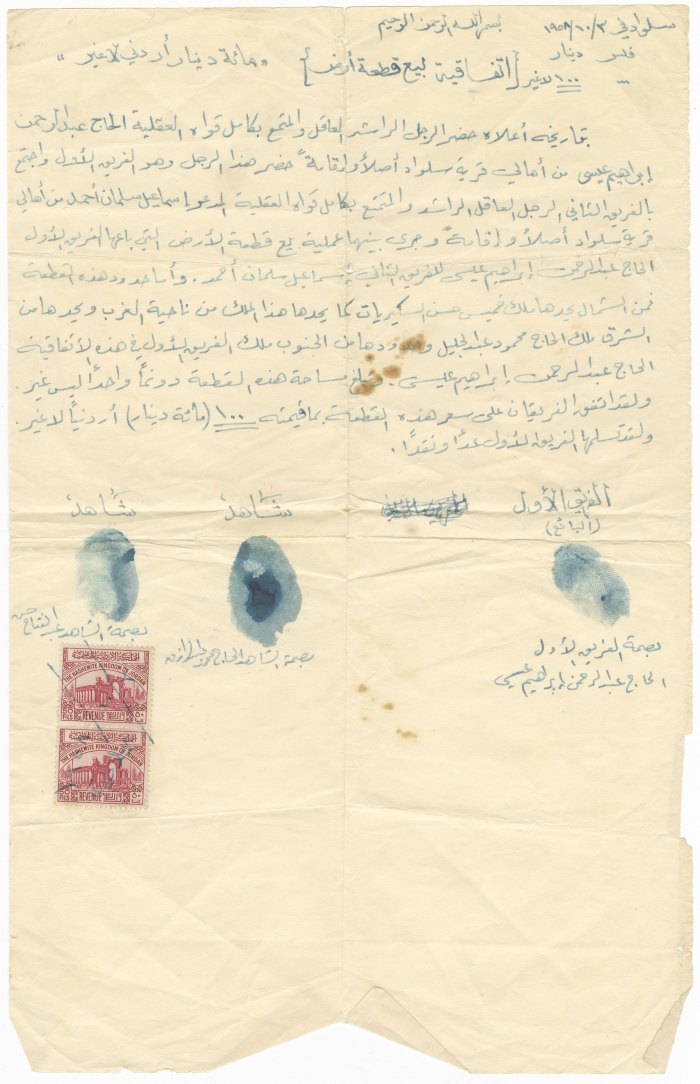 بسم الله الرحمن الرحيم
سلواد في ٣/١٠/١٩٥٨
فلس دينار
... ١٠٠ لا غير [اتفاقية بيع قطعة أرض] «مائة دينار أردني لا غير»
بتاريخه أعلاه حضر الرجل الراشد العاقل والمتمتع بكامل قواه العقلية الحاج عبد الرحمن
إبراهيم عيسى من أهالي قرية سلواد أصلاً وإقامةً حضر هذا الرجل وهو الفريق الأول واجتمع
بالفريق الثاني الرجل العاقل الراشد والمتمتع بكامل قواه العقلية المدعو إسماعيل سلمان أحمد من أهالي
قرية سلواد أصلاً وإقامةً وجرى بينهما عملية بيع قطعة الأرض التي باعها الفريق الأول
الحاج عبد الرحمن إبراهيم عيسى للفريق الثاني إسماعيل سلمان أحمد. وأما حدود هذه القطعة
فمن الشمال يحدها ملك خميس حسن السكيريات كما يحدها هذا الملك من ناحية الغرب ويحدها من
الشرق ملك الحاج محمود عبد الجليل وحدودها من الجنوب ملك الفريق الأول في هذه الاتفاقية
الحاج عبد الرحمن إبراهيم عيسى. وتبلغ مساحة هذه القطعة دونماً واحداً ليس غير.
ولقد اتفق الفريقان على سعر هذه القطعة بما قيمته ١٠٠ (مائة دينار) أردنياً لا غير.
ولقد تسلمها الفريق الأول عداً ونقداً.
الفريق الأول شاهد شاهد
(البائع)
بصمة الفريق الأول
الحاج عبد الرحمن إبراهيم عيسى
بصمة الشاهد الحاج محمد
بصمة الشاهد عبد الفتاح حسن
THE HASHEMITE KINGDOM OF JORDAN
FILS REVENUE
THE HASHEMITE KINGDOM OF JORDAN
FILS REVENUE